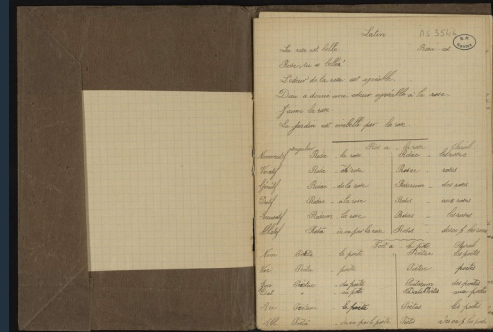 Latin MS 3544
La rose est belle Rosa est
Rose, tu es belle!
L'odeur de la rose est agréable.
Dieu a donné une odeur agréable à la rose.
J'aime la rose.
Le jardin est embelli par la rose.
singulier Ros a - la rose Pluriel
Nominatif Rosa - la rose Rosae - les roses
Vocatif Rosa - rose Rosae - roses
Génitif Rosae - de la rose Rosarum - des roses
Datif Rosae - à la rose Rosis - aux roses
Accusatif Rosam la rose Rosas - les roses
Ablatif Rosâ - par la rose Rosis
Poët a - le poète Pluriel
Nom Poëta le poète Poëtae les poètes
Voc Poëta poète Poëtae poètes
Gen Poëtae du poète Poëtarum des poètes
Dat au poète Poëtis aux poètes
Acc Poëtam le poète Poëtas les poètes
Abl Poëtâ par le poète Poëtis